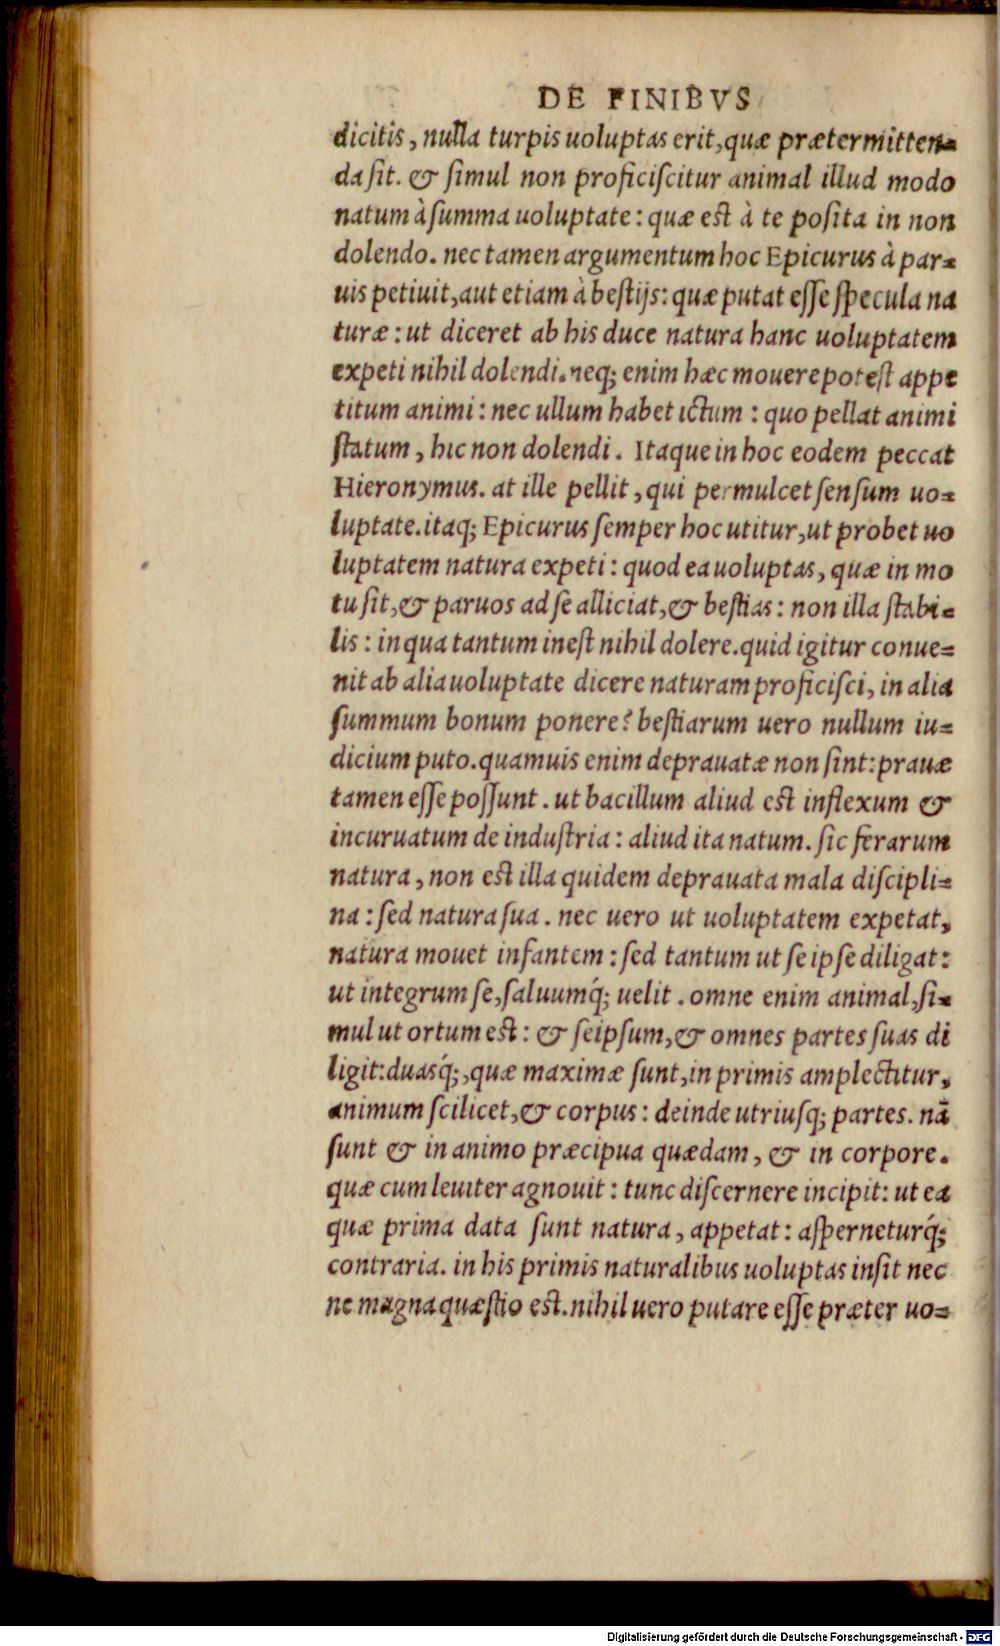 DE FINIBVS
dicitis, nulla turpis uoluptas erit, quæ prætermitten=
da sit. & simul non proficiscitur animal illud modo
natum à summa uoluptate: quæ est à te posita in non
dolendo. nec tamen argumentum hoc Epicurus à par=
uis petiuit, aut etiam à bestijs: quæ putat esse specula na
turæ: ut diceret ab his duce natura hanc uoluptatem
expeti nihil dolendi. neq; enim hæc mouere potest appe
titum animi: nec ullum habet ictum: quo pellat animi
statum, hic non dolendi. Itaque in hoc eodem peccat
Hieronymus. at ille pellit, qui permulcet sensum uo=
luptate. itaq; Epicurus semper hoc utitur, ut probet uo
luptatem natura expeti: quod ea uoluptas, quæ in mo
tu sit, & paruos ad se alliciat, & bestias: non illa stabi=
lis: in qua tantum inest nihil dolere. quid igitur conue=
nit ab alia uoluptate dicere naturam proficisci, in alia
summum bonum ponere? bestiarum uero nullum iu=
dicium puto. quamuis enim deprauatæ non sint: prauæ
tamen esse possunt. ut bacillum aliud est inflexum &
incuruatum de industria: aliud ita natum. sic ferarum
natura, non est illa quidem deprauata mala discipli=
na: sed natura sua. nec uero ut uoluptatem expetat,
natura mouet infantem: sed tantum ut se ipse diligat:
ut integrum se, saluumq́; uelit. omne enim animal, si=
mul ut ortum est: & seipsum, & omnes partes suas di
ligit: duasq́;, quæ maximæ sunt, in primis amplectitur,
animum scilicet, & corpus: deinde utriusq; partes. nā
sunt & in animo præcipua quædam, & in corpore.
quæ cum leuiter agnouit: tunc discernere incipit: ut ea
quæ prima data sunt natura, appetat: asperneturq́;
contraria. in his primis naturalibus uoluptas insit nec
ne magna quæstio est. nihil uero putare esse præter uo=
Digitalisierung gefördert durch die Deutsche Forschungsgemeinschaft - DFG